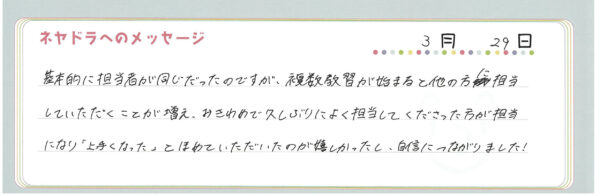 ネヤドラへのメッセージ
3月 29日
基本的に担当者が同じだったのですが、複数教習が始まると他の方に担当
していただくことが増え、おきわめで久しぶりによく担当してくださった方が担当
になり「上手くなった」とほめていただいたのが嬉しかったし、自信につながりました!